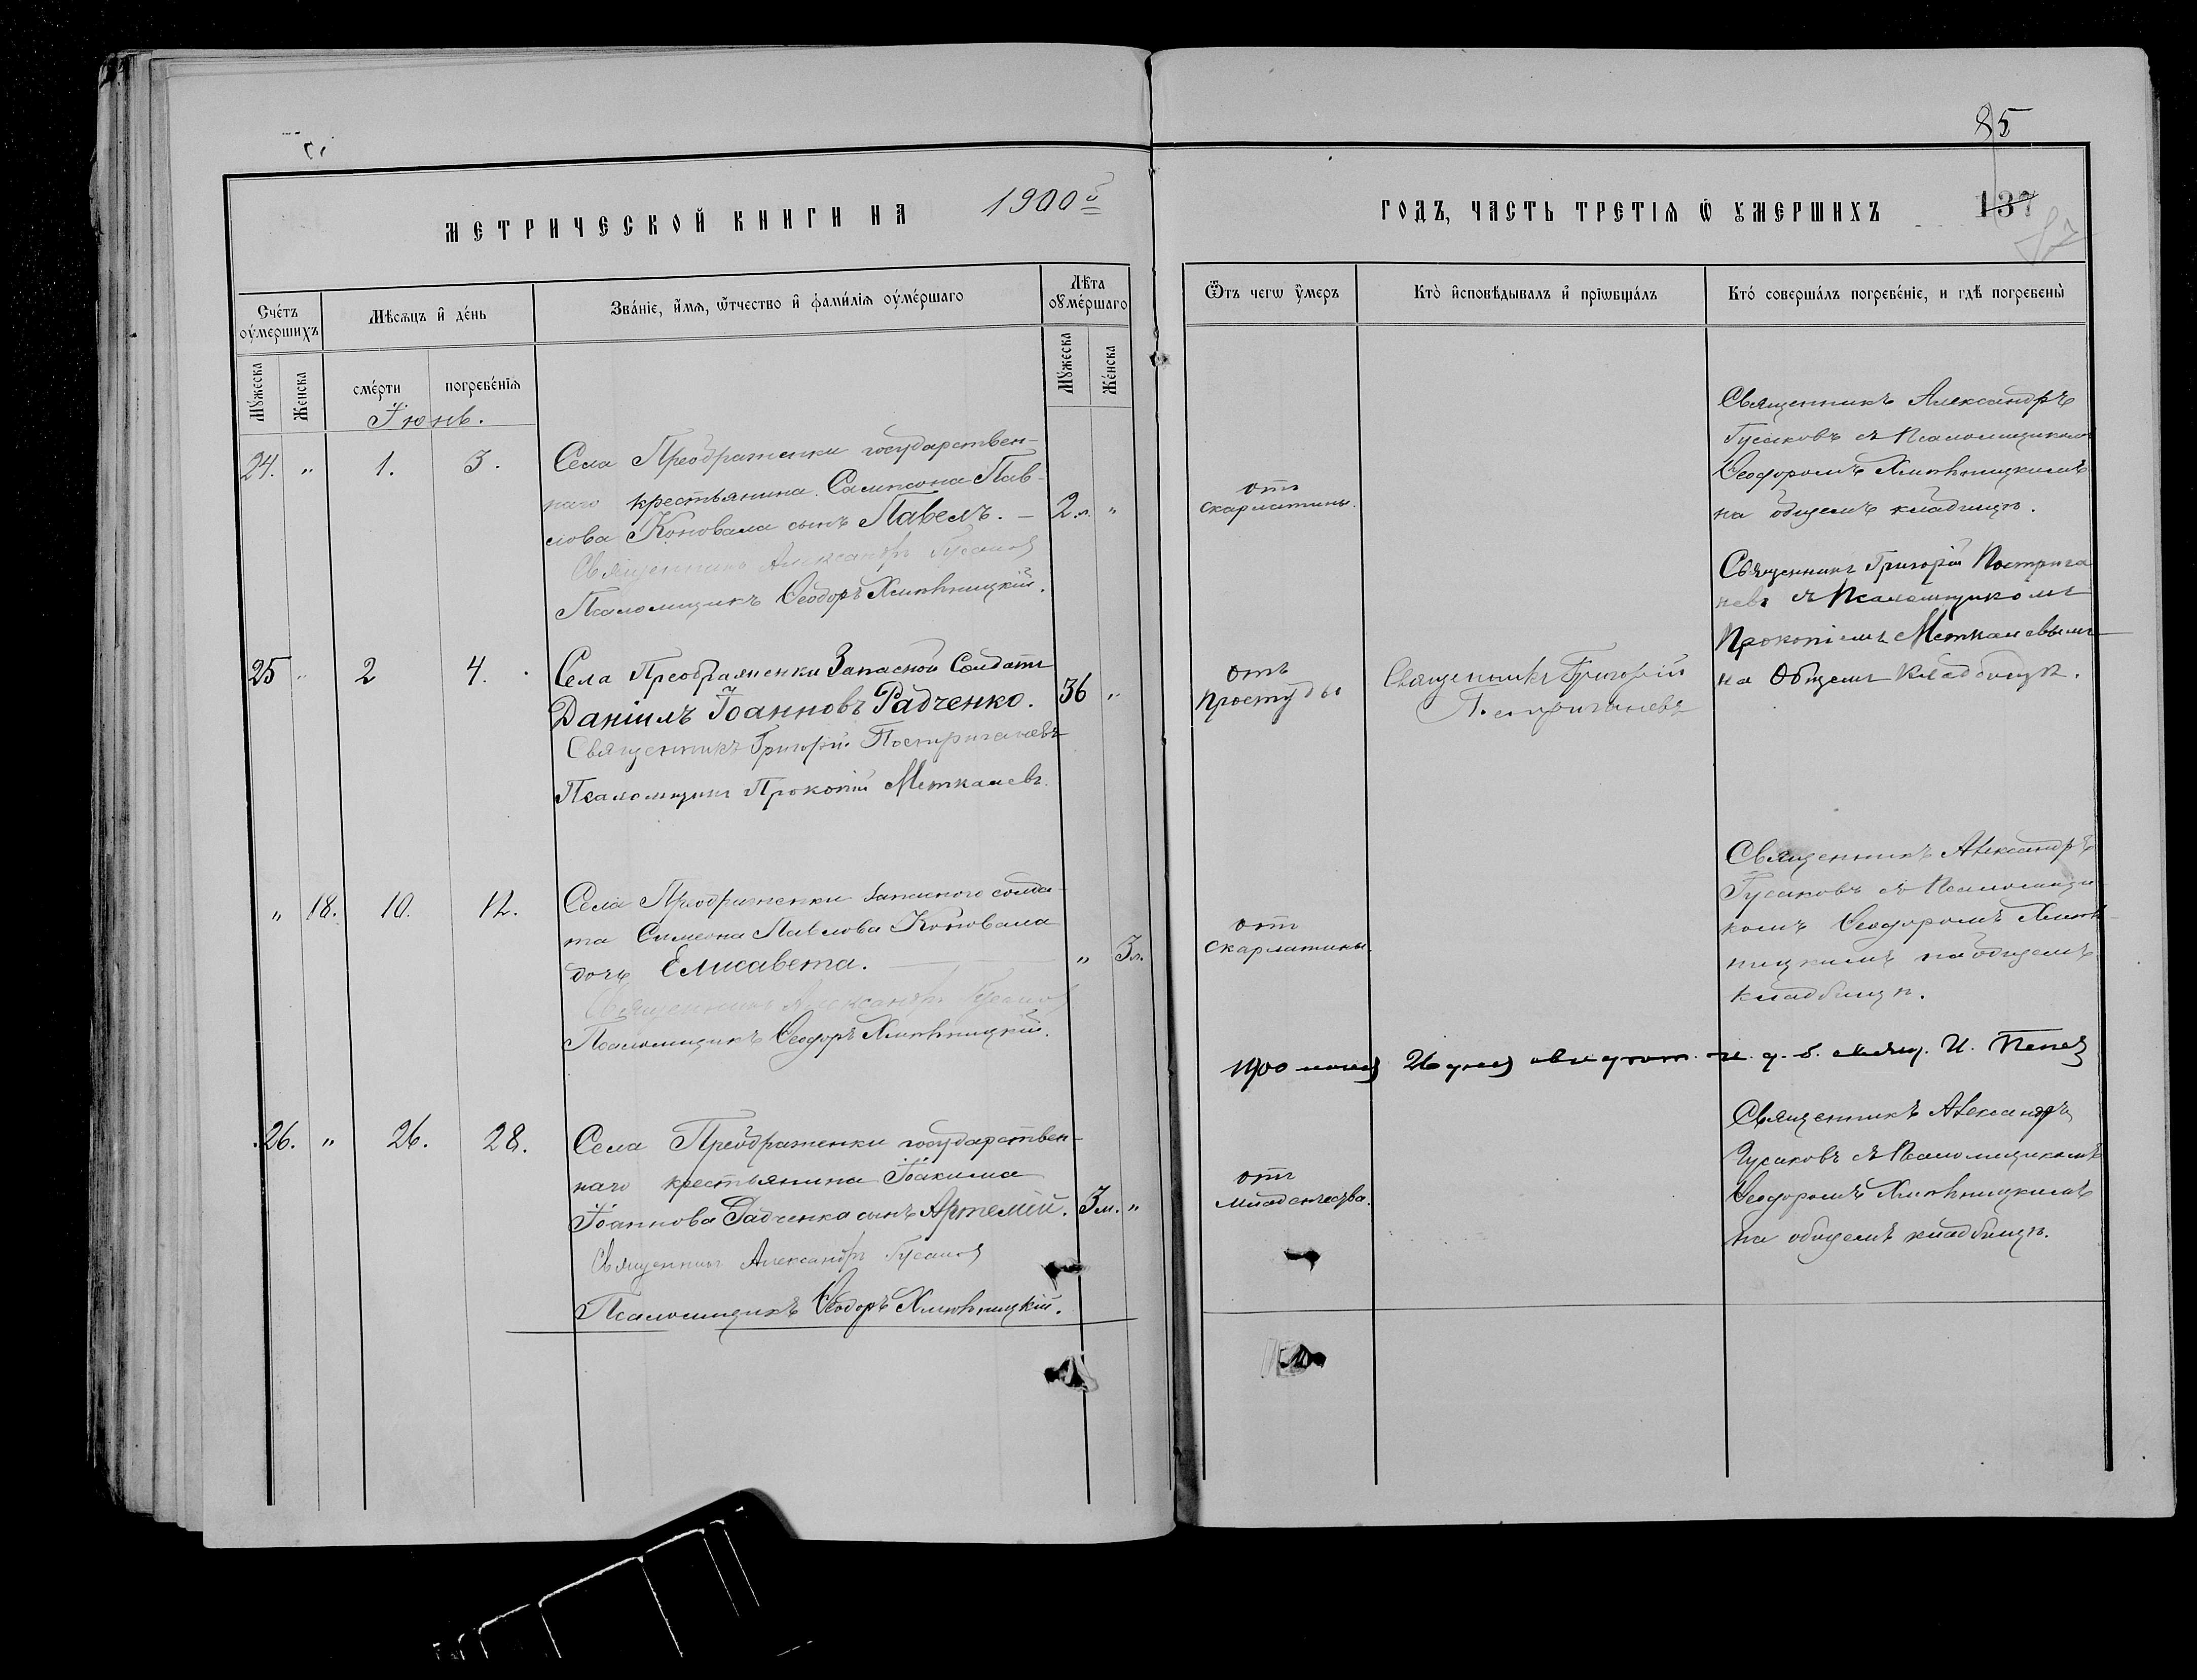 85
МЕТРИЧЕСКОЙ КНИГИ НА 1900й
ГОДЪ, ЧАСТЬ ТРЕТІѦ Ѿ ꙊМЕРШИХЪ
137
87
Сче́тъ оу҆ме́ршихъ
Мѣсѧцъ и҆ де́нь
Зва́нїе, и҆́мѧ, ѻ҆́тчество и҆ фами́лїѧ оу҆ме́ршаго
Лѣ́та оу҆ме́ршаго
Ѿ чегѡ̀ оу҆́меръ
Кто̀ и҆сповѣ́дывалъ и҆ прїѡбща́лъ
Кто́ соверша́лъ погребе́нїе, и гдѣ̀ погребены̀
Мꙋ́жеска
Же́нска
сме́рти
погребе́нїѧ
Мꙋ́жеска
Же́нска
Іюнь.
24. " 1. 3.
Села Преображенки государствен-
наго крестьянина Сампсона Пав-
лова Коновала сынъ Павелъ. —
2 л. "
Священникъ Александръ Гусаковъ
Псаломщикъ Ѳеодоръ Хмѣльницкій.
отъ
скарлатины.
Священникъ Александръ
Гусаковъ съ Псаломщикомъ
Ѳеодоромъ Хмѣльницкимъ
на общемъ кладбищѣ.
25 " 2 4.
Села Преображенки Запасной Солдатъ
Даніилъ Іоанновъ Радченко.
36 "
Священникъ Григорій Постригачевъ
Псаломщикъ Прокопій Меткалевъ.
отъ
простуды
Священникъ Григорій
Постригачевъ
Священникъ Григорій Постри­га
чевъ съ Псаломщикомъ
Прокопіемъ Меткалевымъ
на Общемъ Кладбищѣ.
" 18. 10. 12.
Села Преображенки запасного солда-
та Симеона Павлова Коновала
дочь Елисавета. —
" 3 л.
Священникъ Александръ Гусаковъ
Псаломщикъ Ѳеодоръ Хмѣльницкій.
отъ
скарлатины.
Священникъ Александръ
Гусаковъ съ Псаломщи
комъ Ѳеодоромъ Хмѣль-
ницкимъ на общемъ
кладбищѣ.
1900 26 И.
26. " 26. 28.
Села Преображенки государствен-
наго крестьянина Іоакима
Іоаннова Радченка сынъ Артемій.
3 м. "
Священникъ Александръ Гусаковъ
Псаломщикъ Ѳеодоръ Хмѣльницкій.
отъ
младенчества.
Священникъ Александръ
Гусаковъ съ Псаломщикомъ
Ѳеодоромъ Хмѣльницкимъ
на общемъ кладбищѣ.